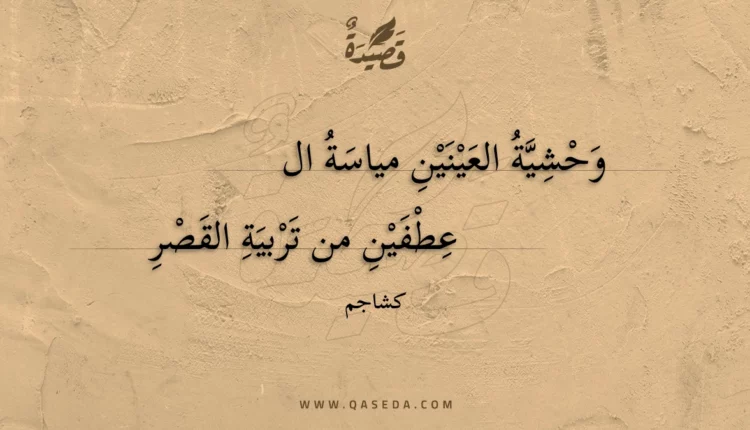 قَصِيدَةٌ
وَحْشِيَّةُ العَيْنَيْنِ مياسَةُ ال
عِطْفَيْنِ من تَرْبيَةِ القَصْرِ
كشاجم
WWW.QASEDA.COM